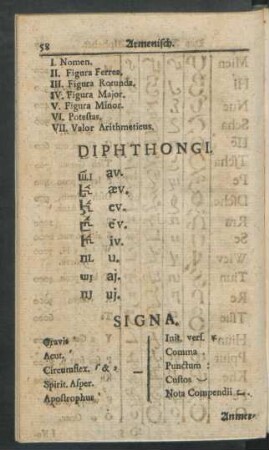 58 Armenisch.
I. Nomen.
II. Figura Ferrea.
III. Figura Rotunda.
IV. Figura Major.
V. Figura Minor.
VI. Potestas.
VII. Valor Arithmeticus.
DIPHTHONGI.
av.
æv.
ev.
ēv.
iv.
ու u.
այ aj.
ուj uj.
SIGNA.
Gravis
Acut.
Circumflex.
Spirit. Asper.
Apostrophus
Init. vers.
Comma
Punctum :
Custos
Nota Compendii
Anmer-